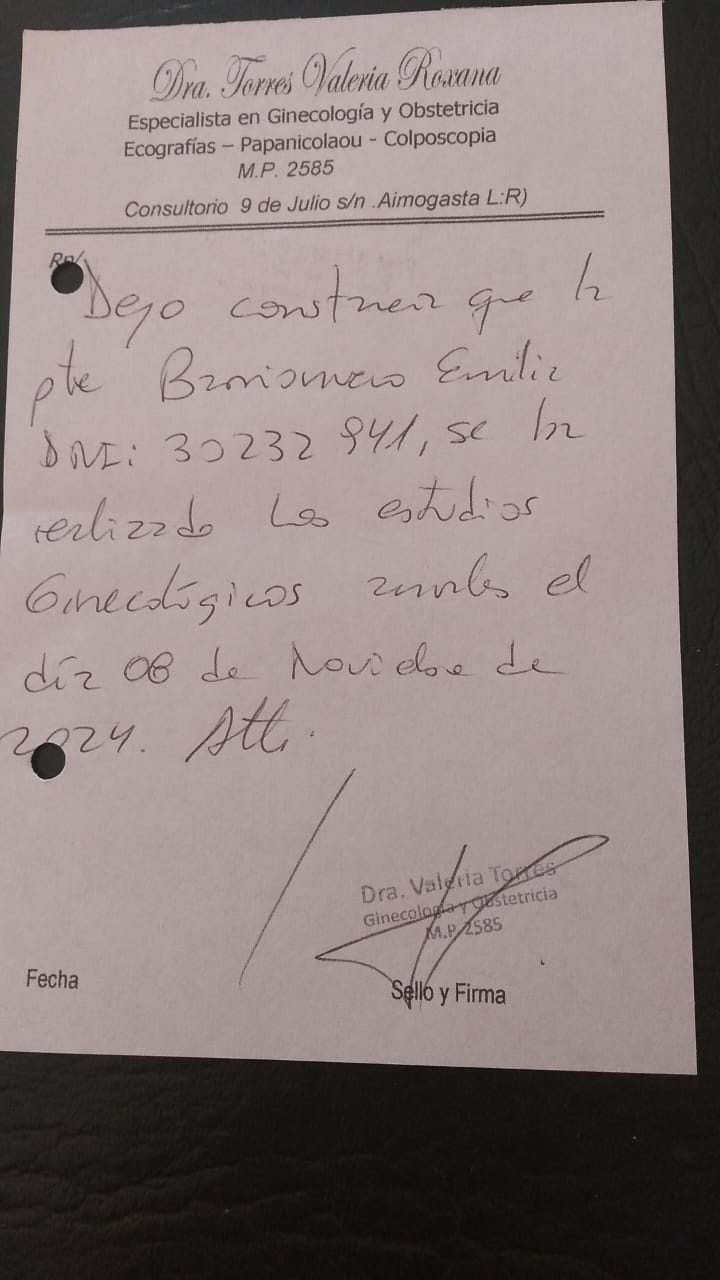 Dra. Torres Valeria Roxana
Especialista en Ginecología y Obstetricia
Ecografías – Papanicolaou - Colposcopia
M.P. 2585
Consultorio 9 de Julio s/n .Aimogasta L:R)
Rp/
Dejo constancia que la
pte Emilia
DNI: 30232 941, se ha
realizado los estudios
Ginecológicos anuales el
día 08 de Noviebre de
2024. Att.
Dra. Valeria Torres
Ginecología y Obstetricia
M.P. 2585
Fecha
Sello y Firma